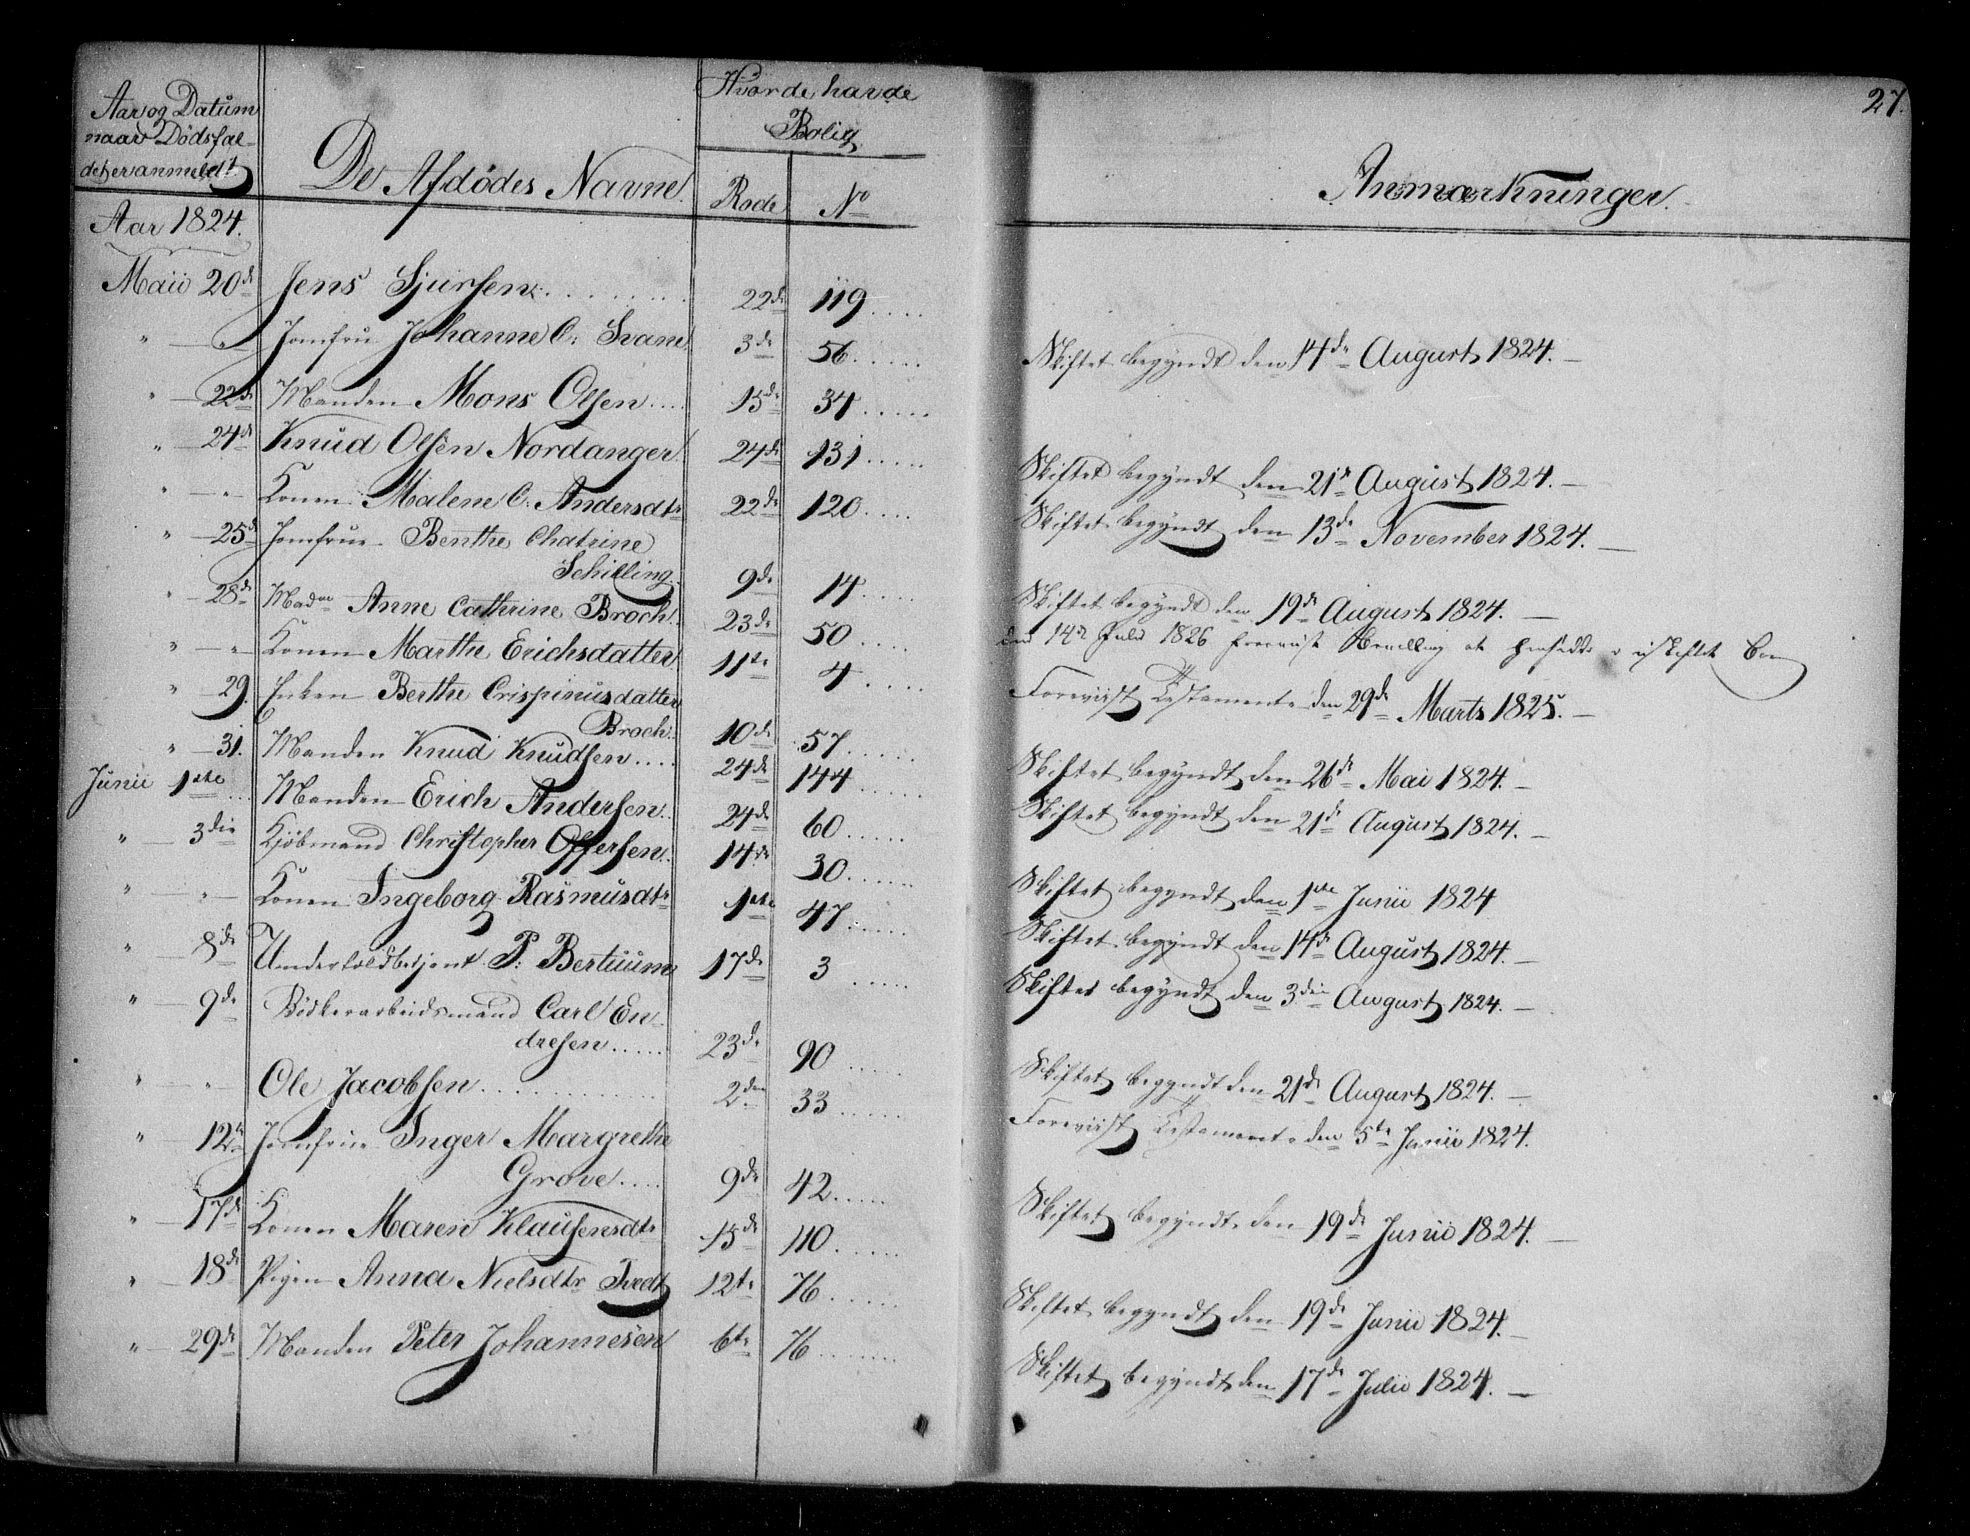 Aar og Datum
naar Dødsfal-
det er anmeldt
De Afdødes Navne.
Hvor de havde
Bolig.
Rode No
Aar 1824.
Maii 20de Jens Sjursen 22de 119
" — " Jomfru Johanne C: Svane 3de 56
" — 22de Manden Mons Olsen 15de 34
" — 24de Knud Olsen Nordanger 24de 131
" — " Konen Malene C. Andersdtr 22de 120
" — 25de Jomfrue Benthe Chatrine
Schilling 9de 14
" — 28de Madme Anne Cathrine Broch 23de 50
" — " Konen Marthe Erichsdatter 11te 4
" — 29. Enken Berthe Crispinusdatter
Broch 10de 57
" — 31. Manden Knud Knudsen 24de 144
Junii 1ste Manden Erich Andersen 24de 60
" — 3die Kjøbmand Christopher Offersen 14de 30
" — " Konen Ingeborg Rasmusdtr 1ste 47
" — 8de Undertoldbetjent P: Bertuum 17de 3
" — 9de Bødkerarbeidsmand Carl En-
dresen 23de 90
" — " Ole Jacobsen 2den 33
" — 12te Jomfrue Inger Margrethe
Grove 9de 42
" — 17de Konen Maren Klausensdtr 15de 110
" — 18de Pigen Anna Nielsdtr Tvedt 12te 76
" — 29de Manden Peter Johannesen 6te 76
27.
Anmærkninger.
Skiftet begyndt den 14de August 1824. —
Skiftet begyndt den 21de August 1824. —
Skiftet begyndt den 13de November 1824. —
Skiftet begyndt den 19de August 1824. —
den 14de Juli 1826 foreviist Bevilling at hensidde i uskiftet Boe
Foreviist Testamente den 29de Marts 1825. —
Skiftet begyndt den 26de Mai 1824. —
Skiftet begyndt den 21de August 1824. —
Skiftet begyndt den 1ste Junii 1824
Skiftet begyndt den 14de August 1824. —
Skiftet begyndt den 3die August 1824. —
Skiftet begyndt den 21de August 1824. —
Foreviist Testamente den 5te Junii 1824.
Skiftet begyndt den 19de Junii 1824. —
Skiftet begyndt den 19de Junii 1824. —
Skiftet begyndt den 17de Julii 1824. —